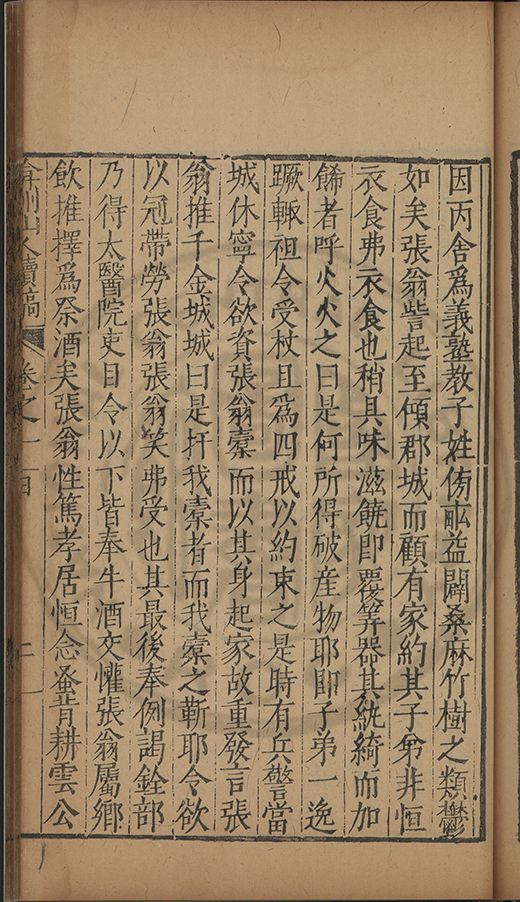 因丙舍爲義塾教子姓侑畝益闢桑麻竹樹之類欝
如矣張翁訾起至傾郡城而顧有家約其子弟非恒
衣食弗衣食也稍具味滋饒即覆筭器其紈綺而加
餙者呼火火之曰是何所得破産物耶即子弟一逸
蹶輙袒令受杖且爲四戒以約束之是時有兵警當
城休寧令欲資張翁槖而以其身起家故重發言張
翁推千金城城曰是扞我槖者而我槖之靳耶令欲
以冠帶勞張翁張翁笑弗受也其最後奉例謁銓部
乃得太醫院吏目令以下皆奉牛酒交懽張翁屬鄉
飲推擇爲祭酒矣張翁性篤孝居恒念蚤背耕雲公
弇州山人續稿
卷之一百
二